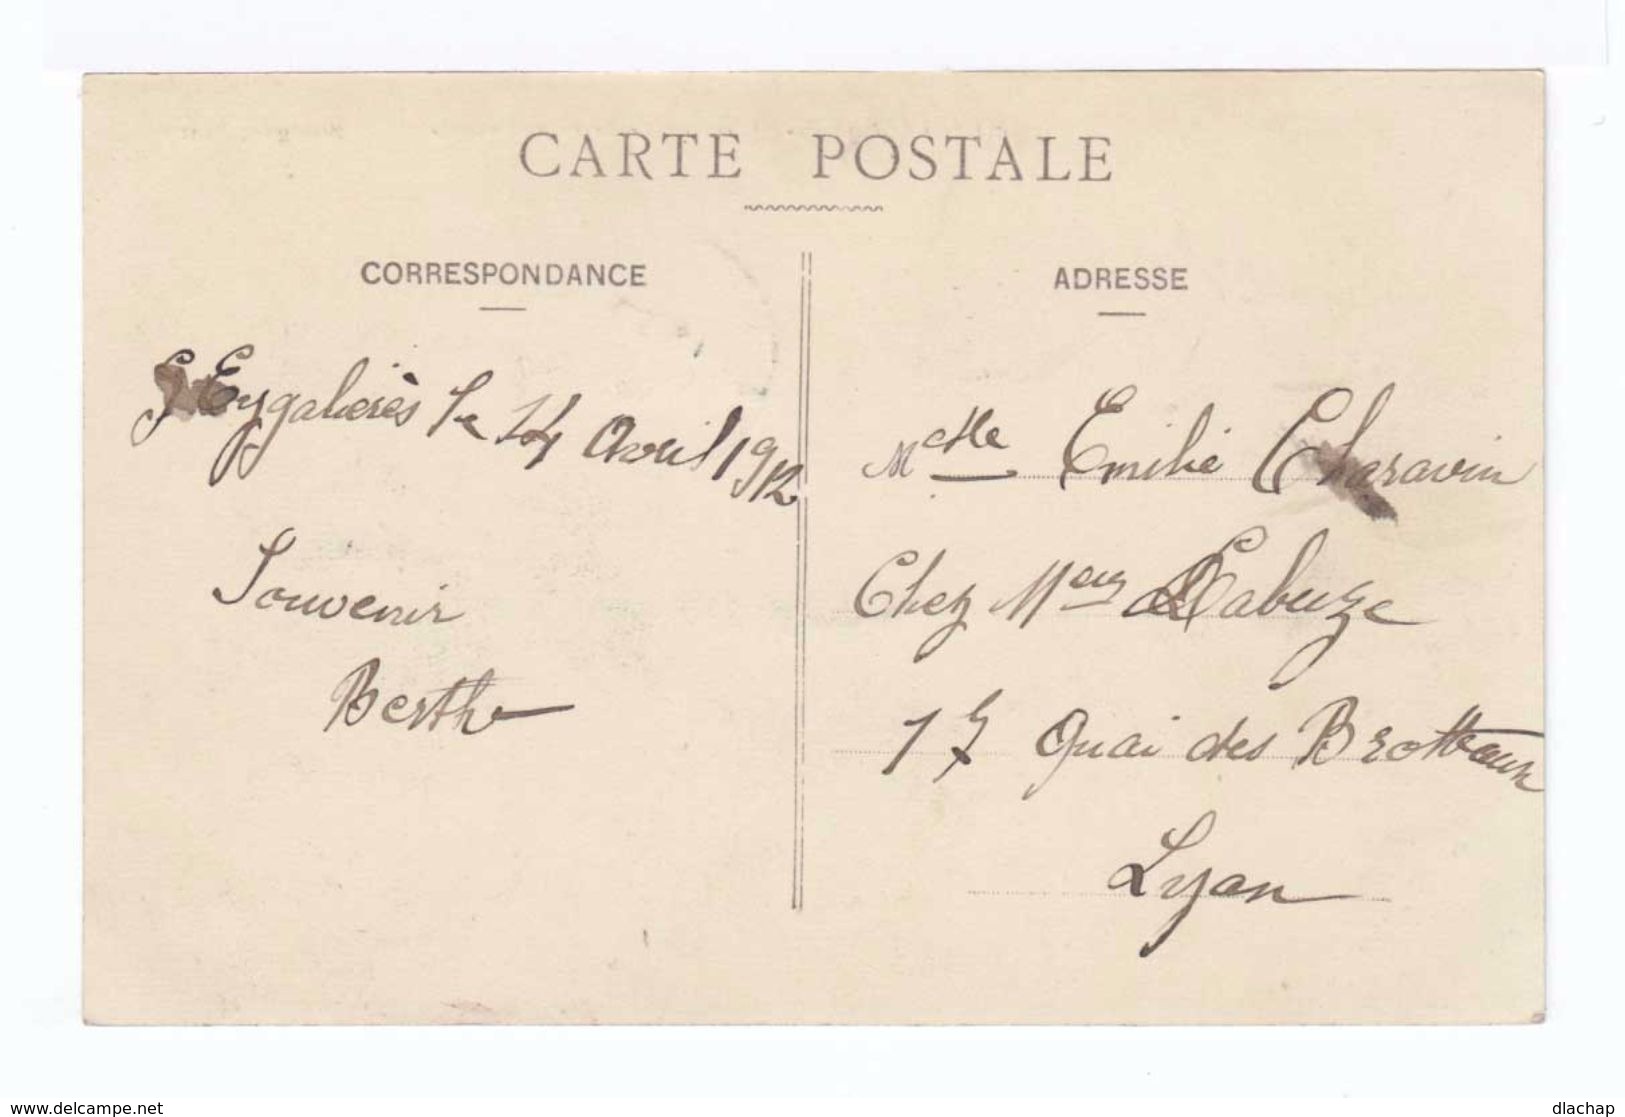 CARTE POSTALE
CORRESPONDANCE
ADRESSE
Eygalières le 14 Avril 1912
Souvenir
Berthe
Melle Emilie Charavin
Chez Mr Labuze
17 Quai des Brotteaux
Lyon
www.delcampe.net
dlachap